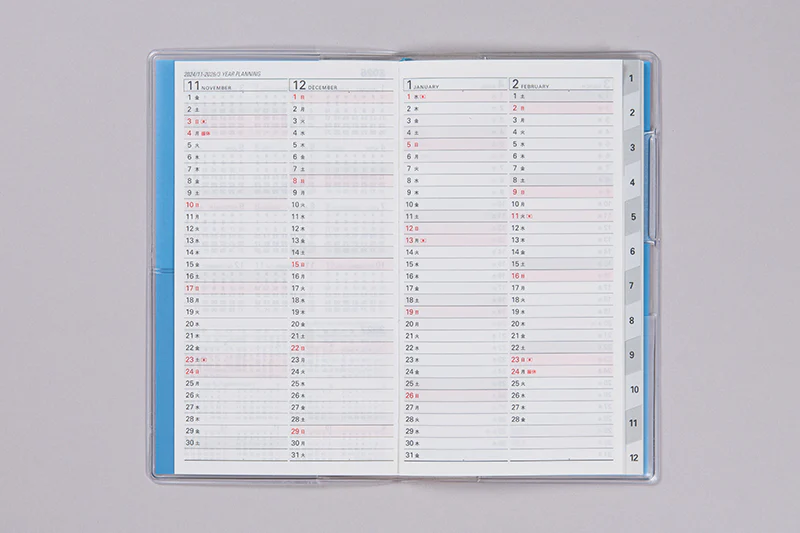 2024/11-2025/3 YEAR PLANNING
11 NOVEMBER
1 金
2 土
3 日
4 月 振休
5 火
6 水
7 木
8 金
9 土
10 日
11 月
12 火
13 水
14 木
15 金
16 土
17 日
18 月
19 火
20 水
21 木
22 金
23 土
24 日
25 月
26 火
27 水
28 木
29 金
30 土
12 DECEMBER
1 日
2 月
3 火
4 水
5 木
6 金
7 土
8 日
9 月
10 火
11 水
12 木
13 金
14 土
15 日
16 月
17 火
18 水
19 木
20 金
21 土
22 日
23 月
24 火
25 水
26 木
27 金
28 土
29 日
30 月
31 火
1 JANUARY
1 水
2 木
3 金
4 土
5 日
6 月
7 火
8 水
9 木
10 金
11 土
12 日
13 月
14 火
15 水
16 木
17 金
18 土
19 日
20 月
21 火
22 水
23 木
24 金
25 土
26 日
27 月
28 火
29 水
30 木
31 金
2 FEBRUARY
1 土
2 日
3 月
4 火
5 水
6 木
7 金
8 土
9 日
10 月
11 火
12 水
13 木
14 金
15 土
16 日
17 月
18 火
19 水
20 木
21 金
22 土
23 日
24 月 振休
25 火
26 水
27 木
28 金
1
2
3
4
5
6
7
8
9
10
11
12